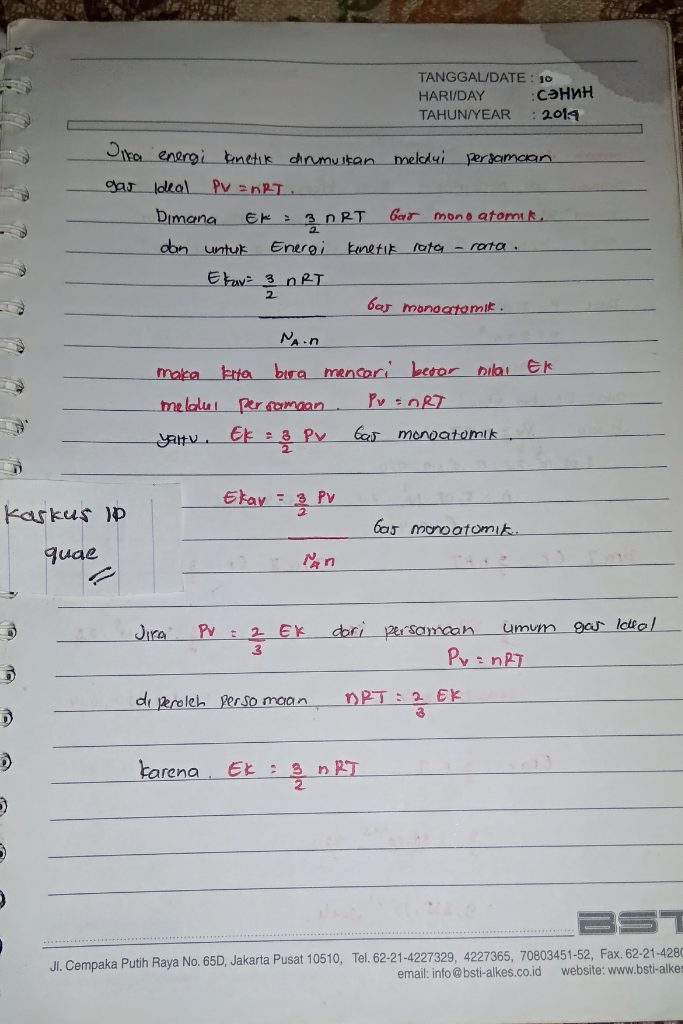 TANGGAL/DATE : 10
HARI/DAY : СЭНИН
TAHUN/YEAR : 2019
Jika energi kinetik dirumuskan melalui persamaan
gas Ideal PV = nRT.
Dimana Ek = 3/2 nRT Gas monoatomik.
dan untuk Energi kinetik rata - rata.
Ekav = 3/2 nRT
Gas monoatomik.
NA . n
maka kita bisa mencari besar nilai Ek
melalui persamaan. PV = nRT
yaitu. Ek = 3/2 PV Gas monoatomik.
Kaskus ID
quae
Ekav = 3/2 PV
Gas monoatomik.
NA n
Jika PV = 2/3 EK dari persamaan umum gas Ideal
PV = nRT
diperoleh persamaan nRT = 2/3 EK
karena. EK = 3/2 nRT
BST
Jl. Cempaka Putih Raya No. 65D, Jakarta Pusat 10510, Tel. 62-21-4227329, 4227365, 70803451-52, Fax. 62-21-428
email: info@bsti-alkes.co.id website: www.bsti-alkes